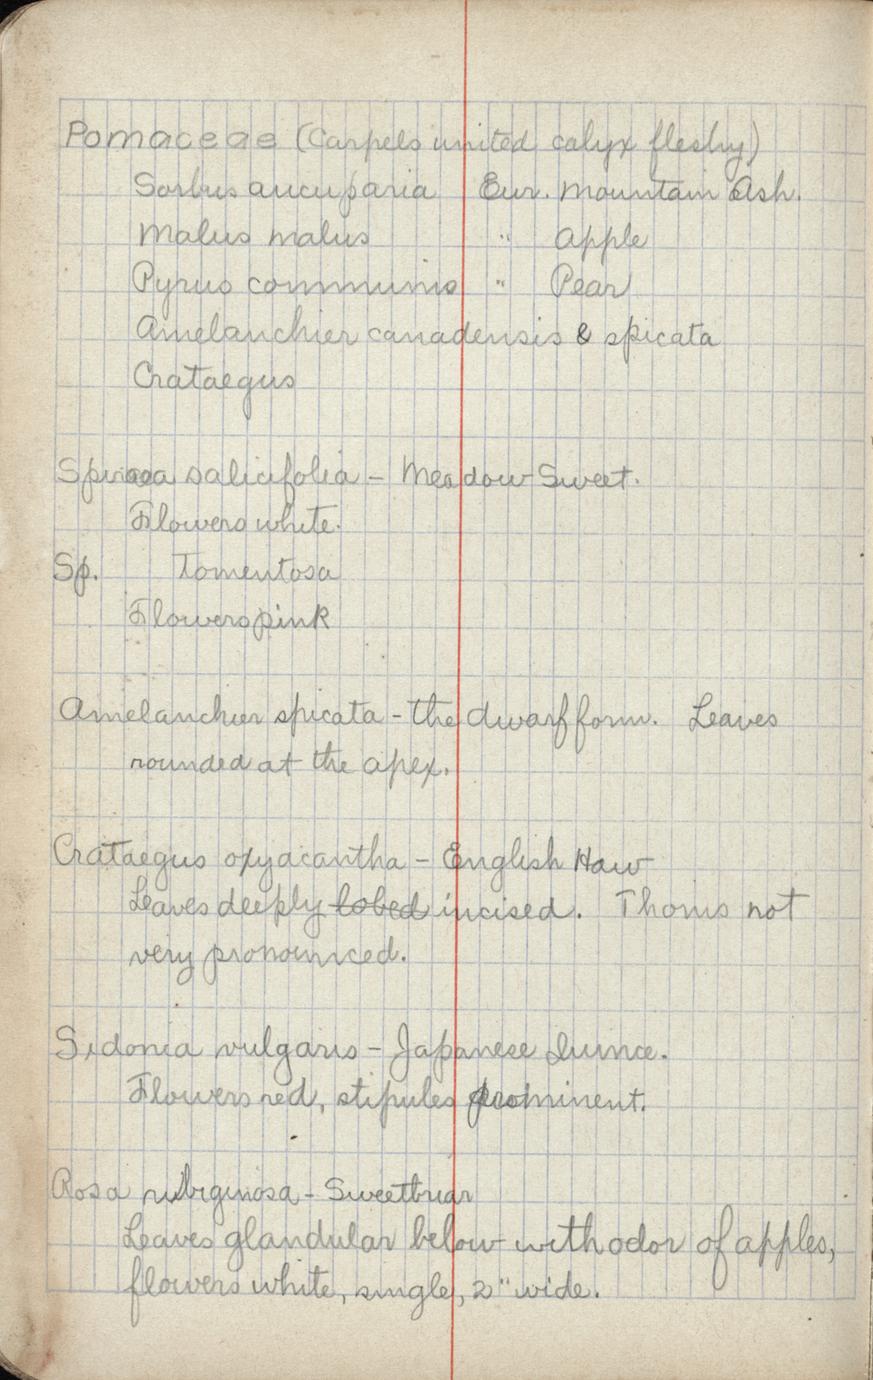 Pomaceae (Carpels united calyx fleshy)
Sorbus aucuparia Eur. Mountain Ash.
Malus malus " Apple
Pyrus communis " Pear
Amelanchier canadensis & spicata
Crataegus
Spiraea salicifolia - Meadow Sweet.
Flowers white.
Sp. Tomentosa
Flowers pink
Amelanchier spicata - the dwarf form. Leaves
rounded at the apex.
Crataegus oxyacantha - English Haw
Leaves deeply lobed incised. Thorns not
very pronounced.
Sidonia vulgaris - Japanese Quince.
Flowers red, stipules prominent.
Rosa rubiginosa - Sweetbriar
Leaves glandular below with odor of apples,
flowers white, single, 2" wide.